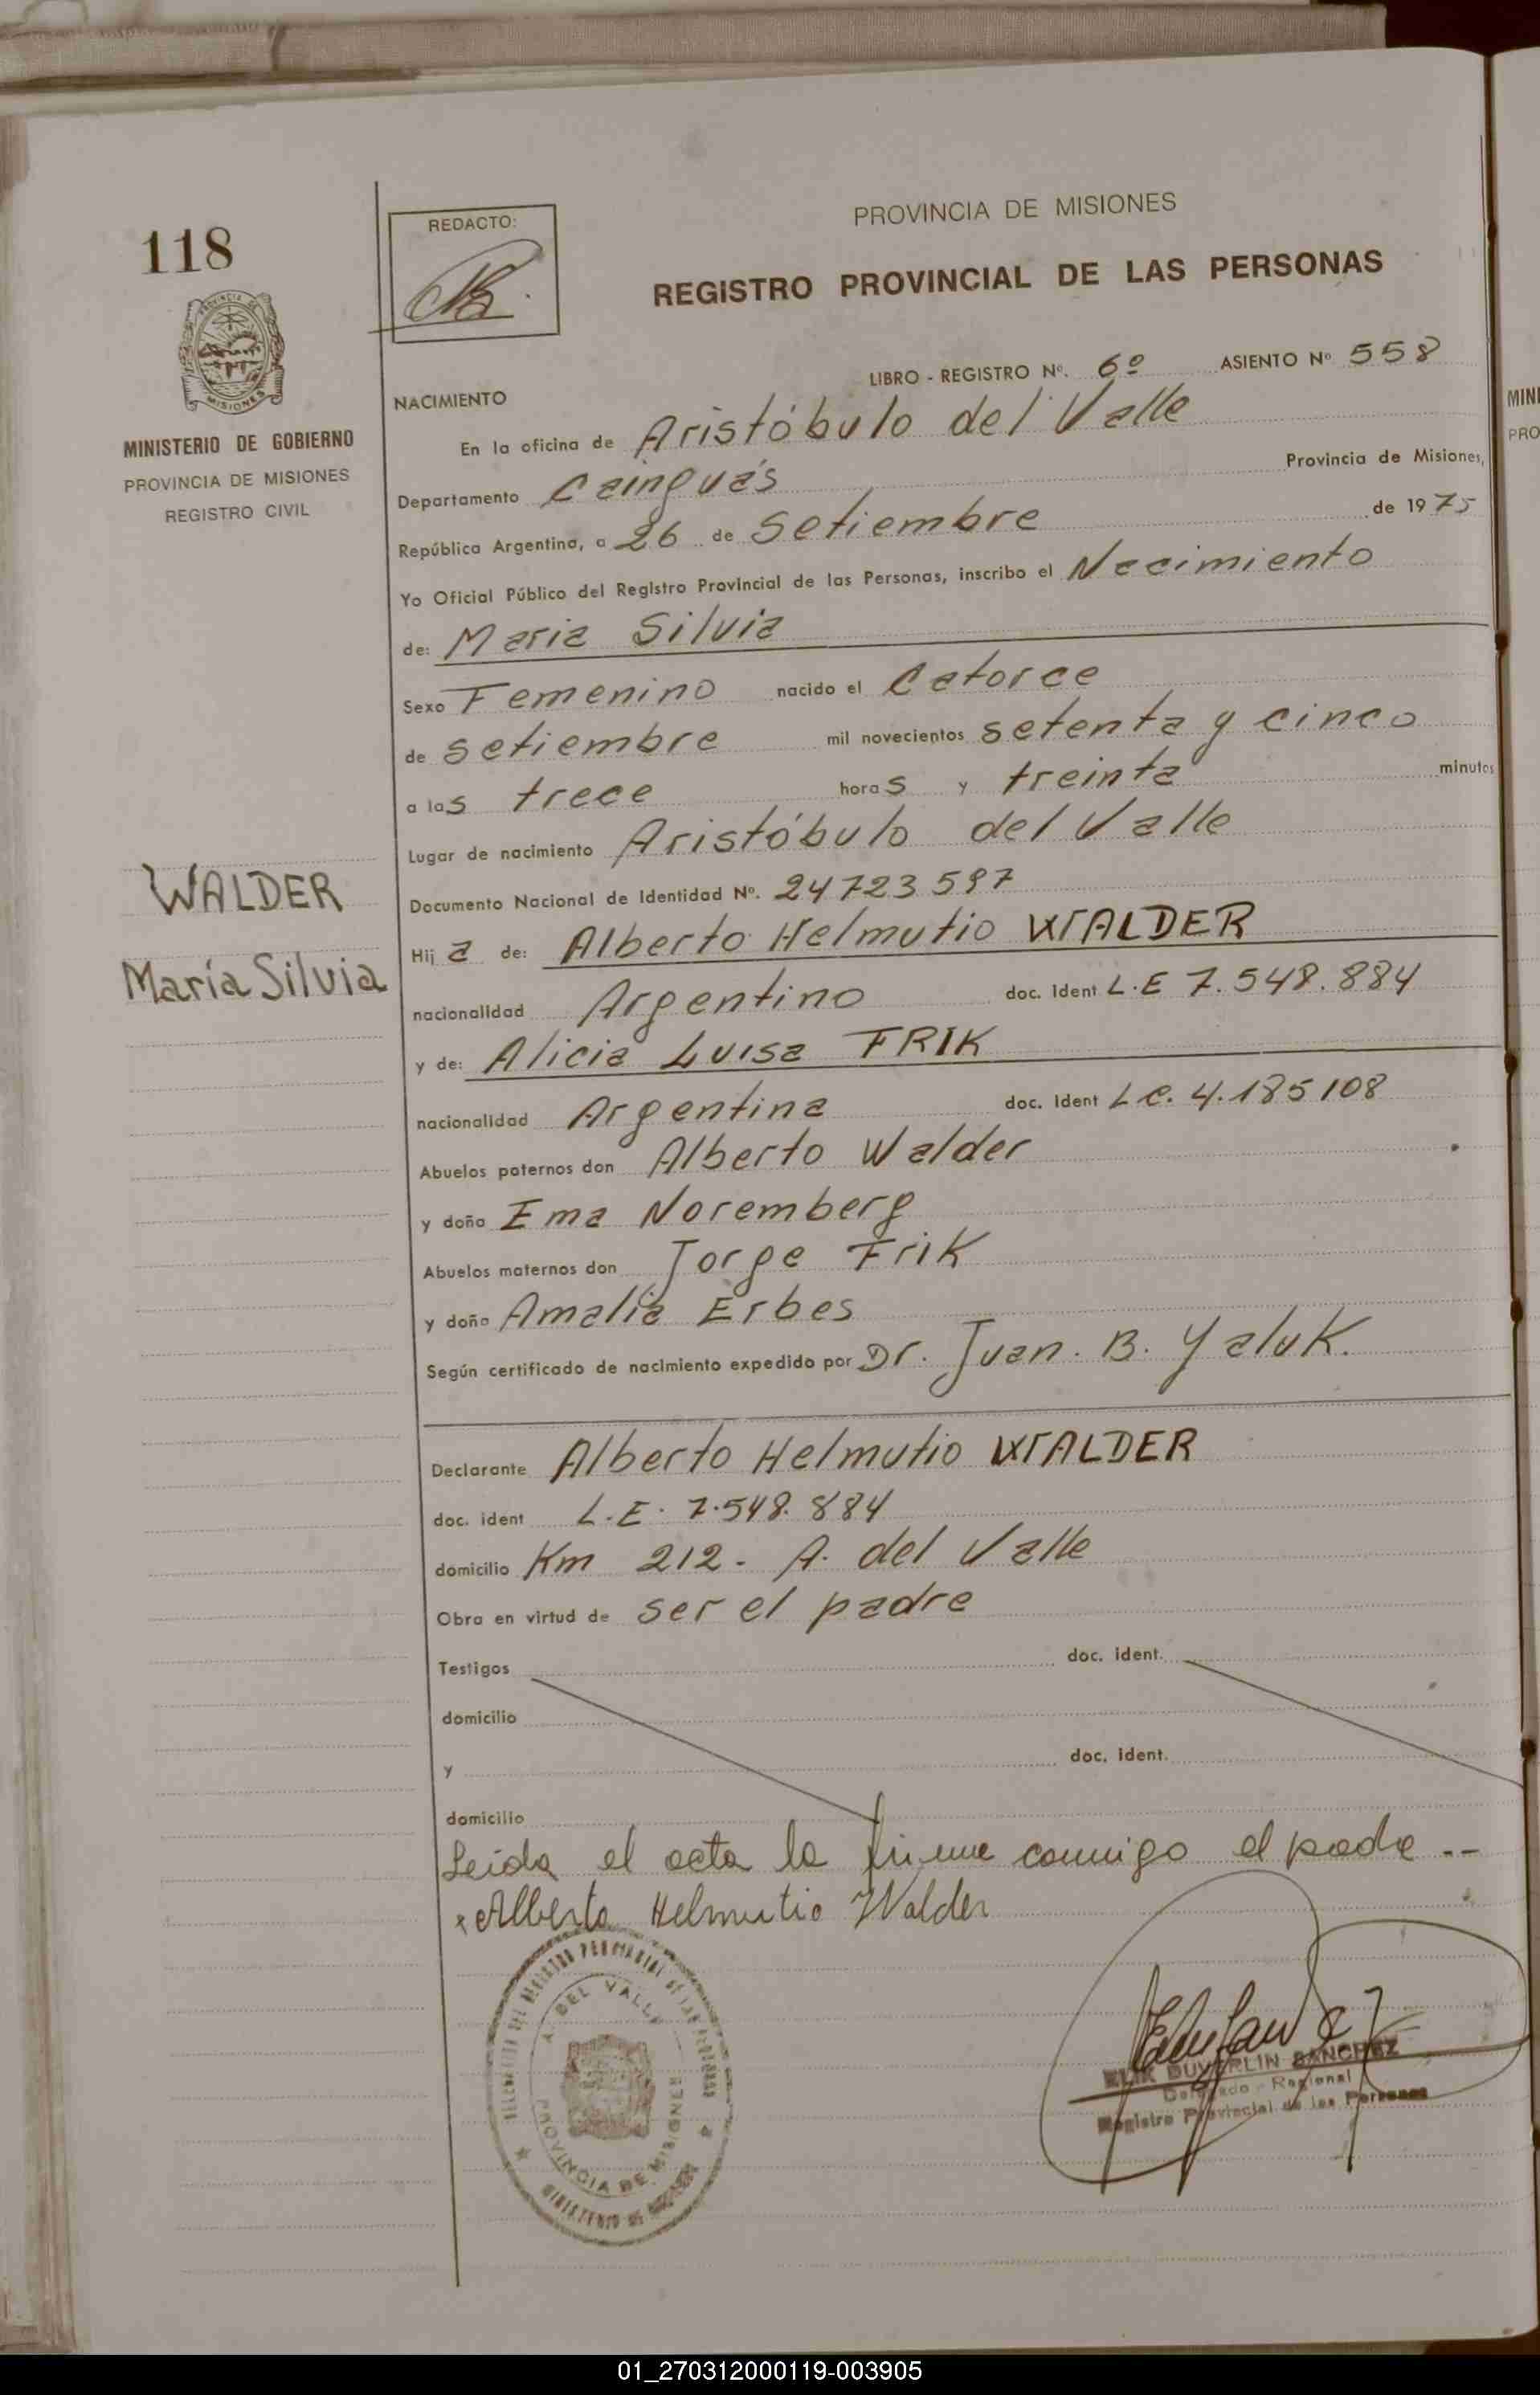 118
REDACTO:
PROVINCIA DE MISIONES
REGISTRO PROVINCIAL DE LAS PERSONAS
MINISTERIO DE GOBIERNO
PROVINCIA DE MISIONES
REGISTRO CIVIL
LIBRO - REGISTRO Nº. 6º ASIENTO Nº 558
NACIMIENTO
En la oficina de Aristóbulo del Valle
Departamento Cainguás Provincia de Misiones,
República Argentina, a 26 de Setiembre de 1975
Yo Oficial Público del Registro Provincial de las Personas, inscribo el Nacimiento
de: Maria Silvia
Sexo Femenino nacido el Catorce
de setiembre mil novecientos setenta y cinco
a las trece horas y treinta minutos
Lugar de nacimiento Aristóbulo del Valle
WALDER
María Silvia
Documento Nacional de Identidad Nº. 24723597
Hija de: Alberto Helmutio WALDER
nacionalidad Argentino doc. ident L.E 7.548.884
y de: Alicia Luisa FRIK
nacionalidad Argentina doc. ident L.C. 4.185108
Abuelos paternos don Alberto Walder
y doña Ema Noremberg
Abuelos maternos don Jorge Frik
y doña Amalia Erbes
Según certificado de nacimiento expedido por Dr. Juan. B. Yaluk.
Declarante Alberto Helmutio WALDER
doc. ident L.E. 7.548.884
domicilio Km 212 - A. del Valle
Obra en virtud de ser el padre
Testigos doc. ident.
domicilio
y doc. ident.
domicilio
Leida el acta la firma conmigo el padre --
Alberto Helmutio Walder
A. DEL VALLE
PROVINCIA DE MISIONES
SANCHEZ
Delegado - Regional
Registro Provincial de las Personas
MINI
PRO
01_270312000119-003905